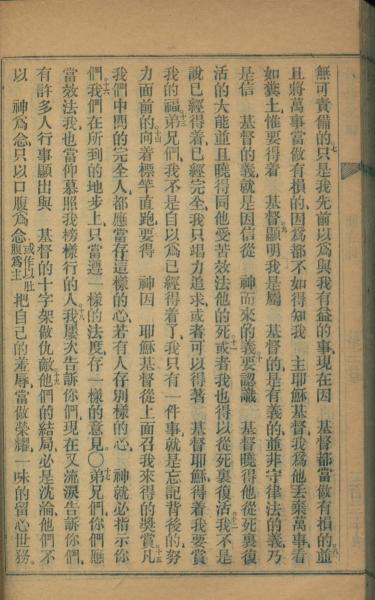 無可責備的只是我先前以爲與我有益的事現在因 基督都當做有損的並
且將萬事當做有損的因爲都不如得知我 主耶穌基督我爲他丟棄萬事看
如糞土惟要得着 基督顯明我是屬 基督的是有義的並非守律法的義乃
是信 基督的義就是因信從 神而來的義要認識 基督曉得他從死裏復
活的大能並且曉得同他受苦效法他的死或者我也得以從死裏復活我不是
說已經得着已經完全我只竭力追求或者可以得著 基督耶穌得着我要賞
我的福弟兄們我不是自以爲已經得着了我只有一件事就是忘記背後的努
力面前的向着標竿直跑要得 神因 耶穌基督從上面召我來得的獎賞凡
我們中間的完全人都應當存這樣的心若有人存別樣的心 神就必指示你
們我們在所到的地步上只當遵一樣的法度存一樣的意見〇弟兄們你們應
當效法我也當仰慕照我榜樣行的人我屢次告訴你們現在又流淚告訴你們
有許多人行事顯出與 基督的十字架做仇敵他們的結局必是沈淪他們不
以 神爲念只以口腹爲念或作以肚腹爲主把自己的羞辱當做榮耀一味的留心世務